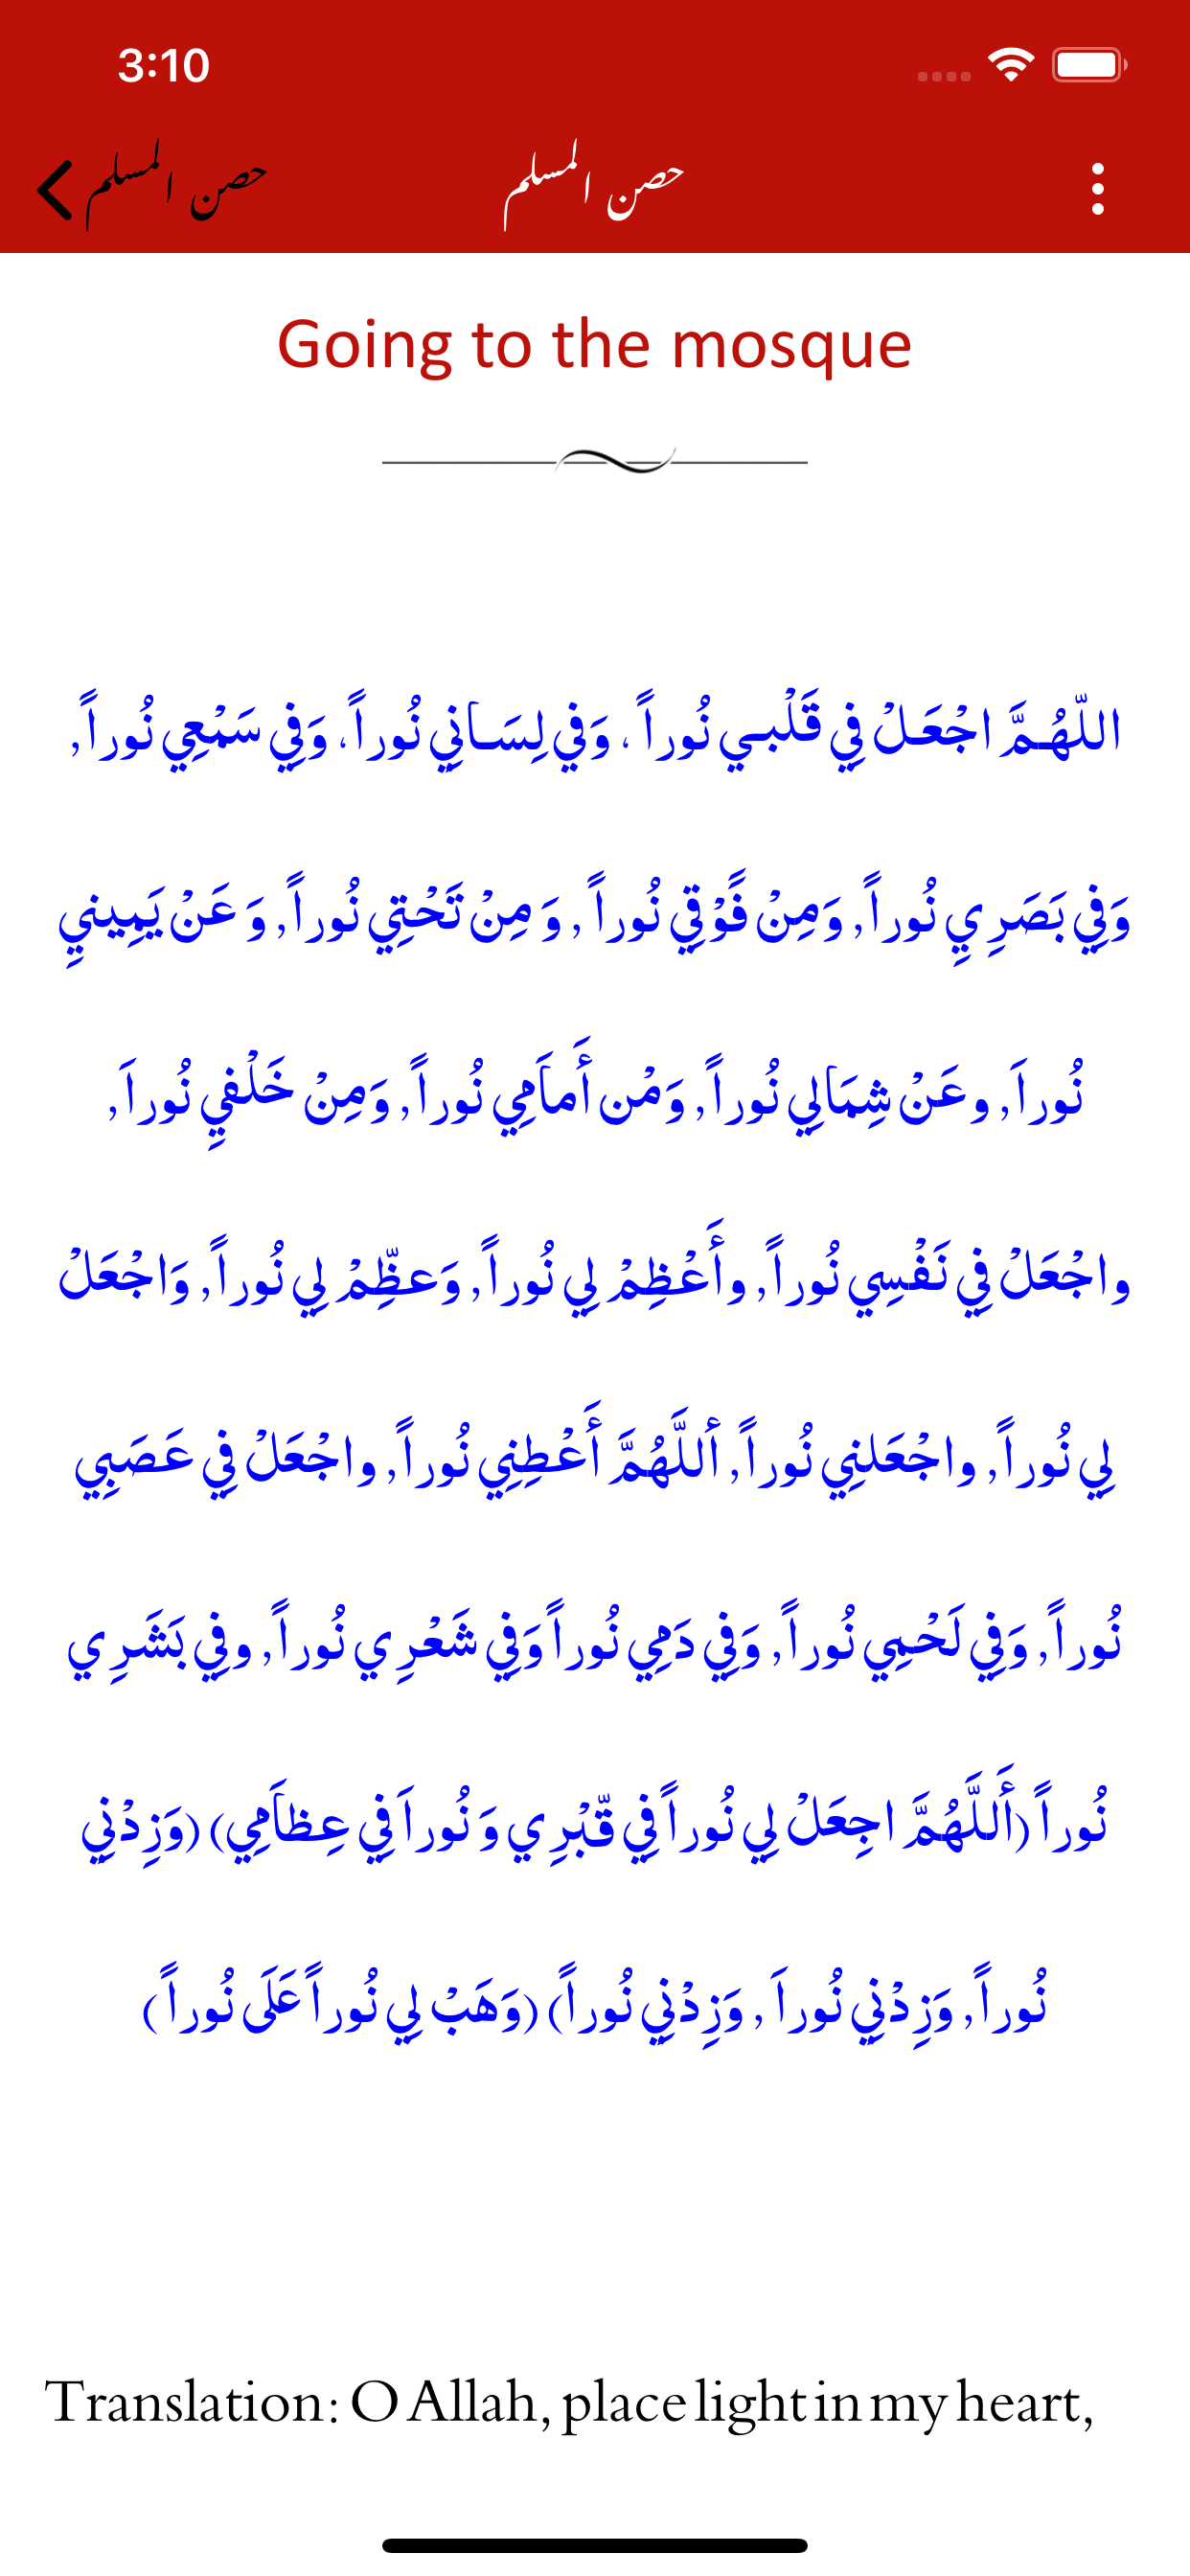 3:10
حصن المسلم
حصن المسلم
Going to the mosque
اللّهُـمَّ اجْعَـلْ فِي قَلْبـي نُوراً ، وَفي لِسَـانِي نُوراً، وَفِي سَمْعِي نُوراً,
وَفِي بَصَرِيِ نُوراً, وَمِنْ فًوْقِي نُوراً , وَ مِنْ تَحْتِي نُوراً, وَ عَنْ يَمِينيِ
نُوراَ, وعَنْ شِمَالِي نُوراً, وَمْن أَماَمِي نُوراً, وَمِنْ خَلْفيِ نُوراَ,
واجْعَلْ فِي نَفْسِي نُوراً, وأَعْظِمْ لِي نُوراً, وَعظِّمْ لِي نُوراً, وَاجْعَلْ
لِي نُوراً, واجْعَلنِي نُوراً, أللَّهُمَّ أَعْطِنِي نُوراً, واجْعَلْ فِي عَصَبِي
نُوراً, وَفِي لَحْمِي نُوراً, وَفِي دَمِي نُوراً وَفِي شَعْرِي نُوراً, وفِي بَشَرِي
نُوراً (أَللَّهُمَّ اجِعَلْ لِي نُوراً فِي قّبْرِي وَ نُوراَ فِي عِظاَمِي) (وَزِدْنِي
نُوراً, وَزِدْنِي نُوراَ , وَزِدْنِي نُوراً) (وَهَبْ لِي نُوراً عَلَى نُوراً)
Translation: O Allah, place light in my heart,